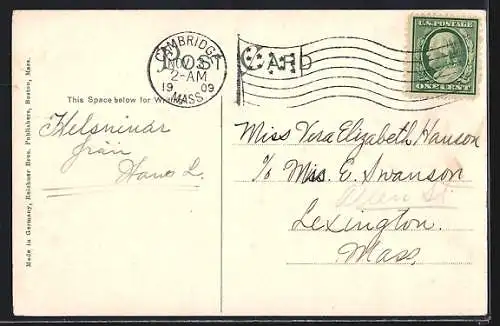 Post CARD
CAMBRIDGE
NOV 3
2-AM
19 09
MASS.
U.S. POSTAGE
ONE CENT
This Space below for Writing
Helsningar
från
Hans L.
Miss Vera Elizabeth Hanson
c/o Miss. E. Swanson
Allen St.
Lexington.
Mass.
Made in Germany, Reichner Bros. Publishers, Boston, Mass.